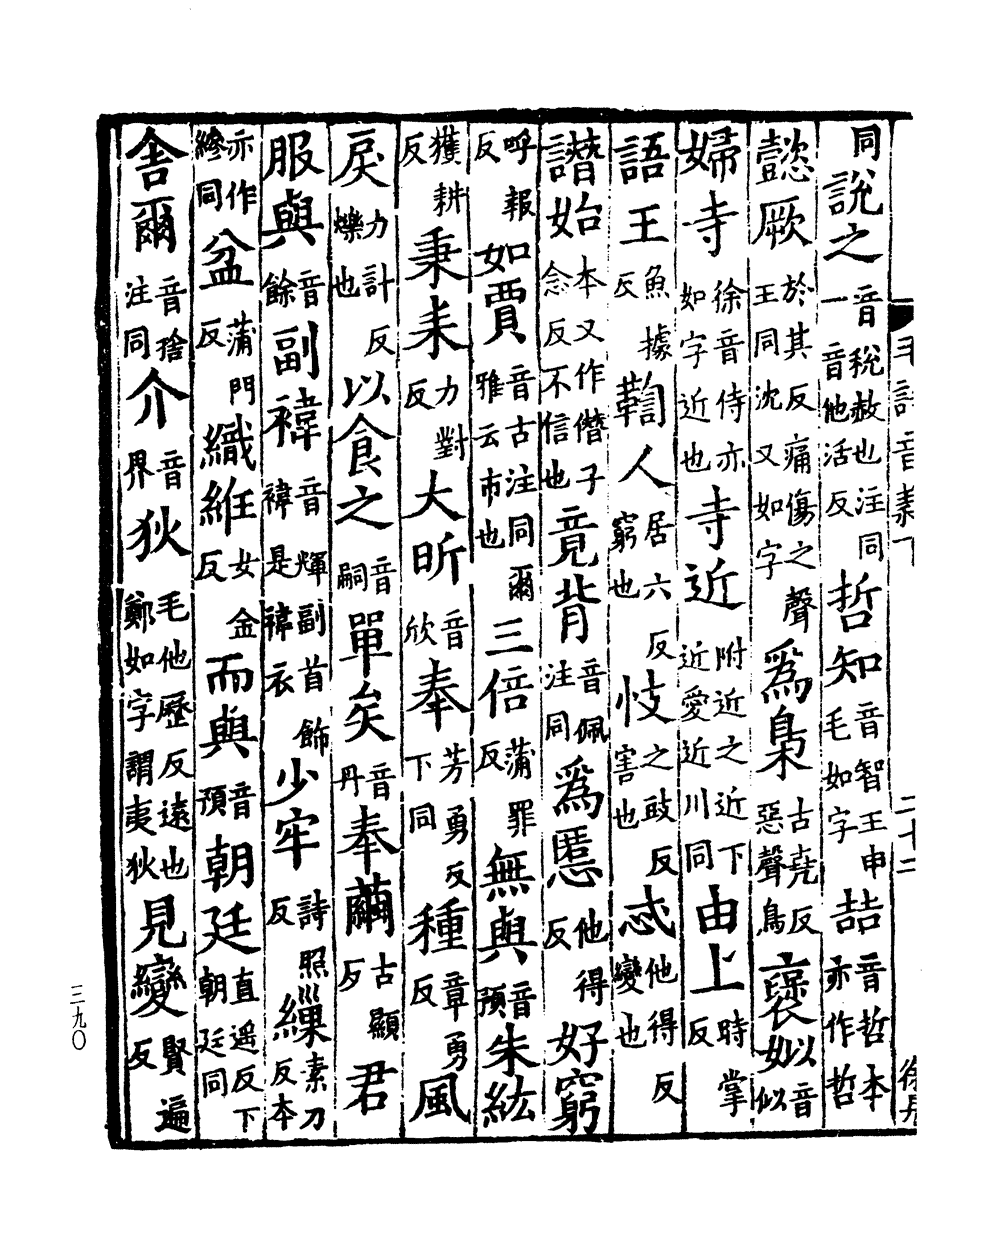 毛詩音義下
二十二
同說之音稅赦也注同一音他活反哲知音智王申毛如字喆音哲本亦作哲
懿厥於其反痛傷之聲王同沈又如字為梟古堯反惡聲鳥褒姒音似
婦寺徐音侍亦如字近也寺近附近之近下近愛近川同由上時掌反
語王魚據反鞫人居六反窮也忮之豉反害也忒他得反變也
譖始本又作僭子念反不信也竟背音佩注同為慝他得反好窮
呼報反如賈音古注同爾雅云市也三倍蒲罪反無與音預朱紘
獲耕反秉耒力對反大昕音欣奉芳勇反下同種章勇反風
戾力計反爍也以食之音嗣單矣音丹奉繭古顯反君
服與音餘副褘音輝副首飾褘是褘衣少牢詩照反繅素刀反本
亦作縿同盆蒲門反織紝女金反而與音預朝廷直遙反下朝廷同
舍爾音捨注同介音界狄毛他歷反遠也鄭如字謂夷狄見變賢遍反
三九〇